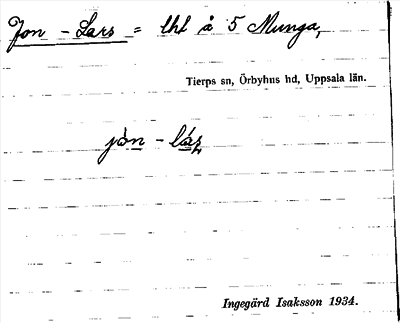 Jon - Lars = lhl å 5 Munga,
Tierps sn, Örbyhus hd, Uppsala län.
jòn - láʂ
Ingegärd Isaksson 1934.